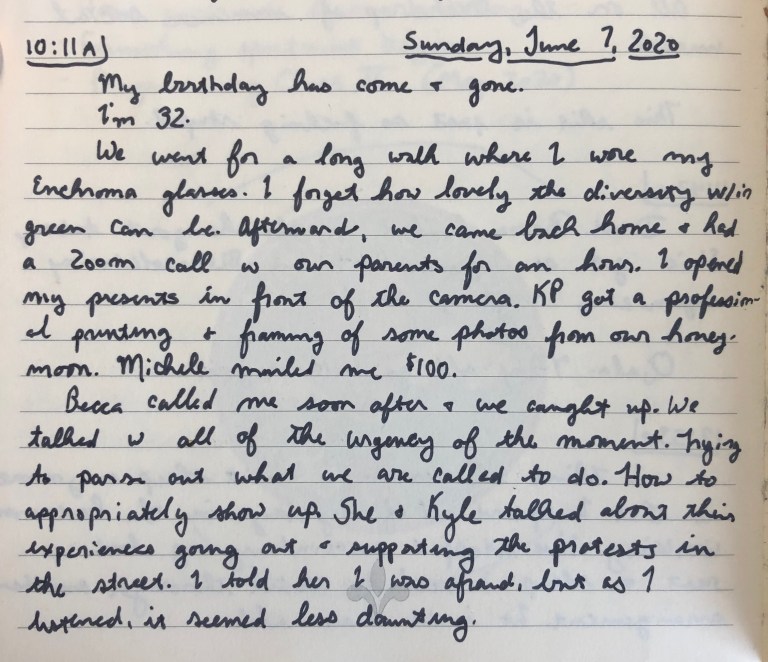 10:11A Sunday, June 7, 2020
My birthday has come & gone.
I'm 32.
We went for a long walk where I wore my
Enchroma glasses. I forget how lovely the diversity w/in
green can be. Afterward, we came back home & had
a Zoom call w our parents for an hour. I opened
my presents in front of the camera. KP got a profession-
al printing & framing of some photos from our honey-
moon. Michele mailed me $100.
Becca called me soon after & we caught up. We
talked w all of the urgency of the moment. Trying
to parse out what we are called to do. How to
appropriately show up. She & Kyle talked about their
experiences going out & supporting the protests in
the street. I told her I was afraid, but as I
listened, it seemed less daunting.